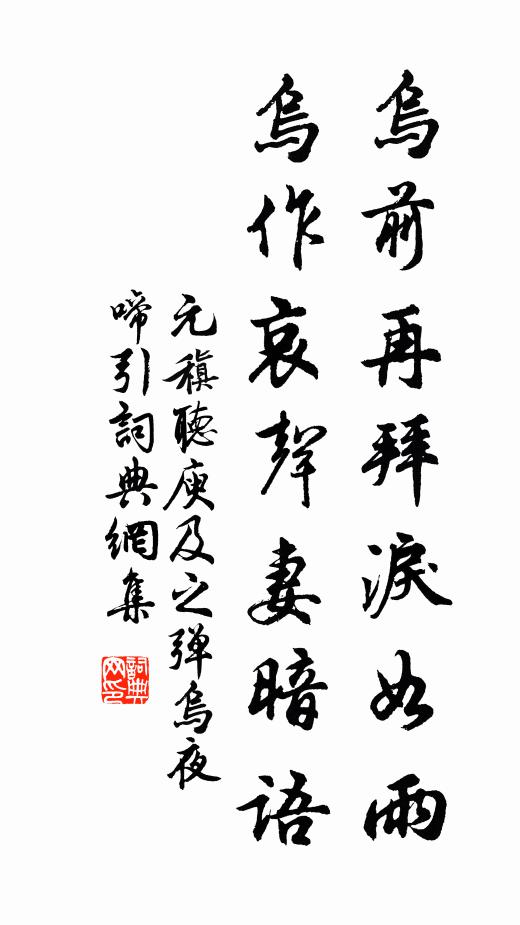 烏前再拜淚如雨
烏作哀聲妻暗語
元稹聽庾及之彈烏夜
啼引詞典網集
詞典
网印